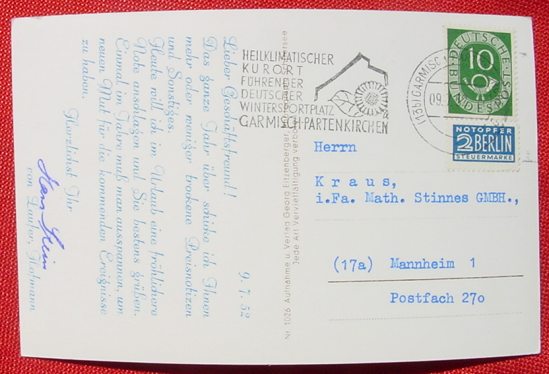 Lieber Geschäftsfreund!
Das ganze Jahr über schicke ich Ihnen
mehr oder weniger trockene Preisnotizen
und Sonstiges.
Heute will ich im Urlaub eine fröhlichere
Note anschlagen und Sie bestens grüßen.
Einmal im Jahre muß man ausspannen, um
neuen Mut für die kommenden Ereignisse
zu haben.
Herzlichst Ihr
von Lauker, Hofmann
9.7.52
Nr 1026 Aufnahme u Verlag Georg Fitzenberger,
Jede Art Vervielfältigung verboten
HEILKLIMATISCHER
KURORT
FÜHRENDER
DEUTSCHER
WINTERSPORTPLATZ
GARMISCH-PARTENKIRCHEN
(13b) GARMISCH
09.
10
DEUTSCHE
BUNDESPOST
NOTOPFER
2 BERLIN
STEUERMARKE
Herrn
Kraus,
i.Fa. Math. Stinnes GMBH.,
(17a) Mannheim 1
Postfach 27o